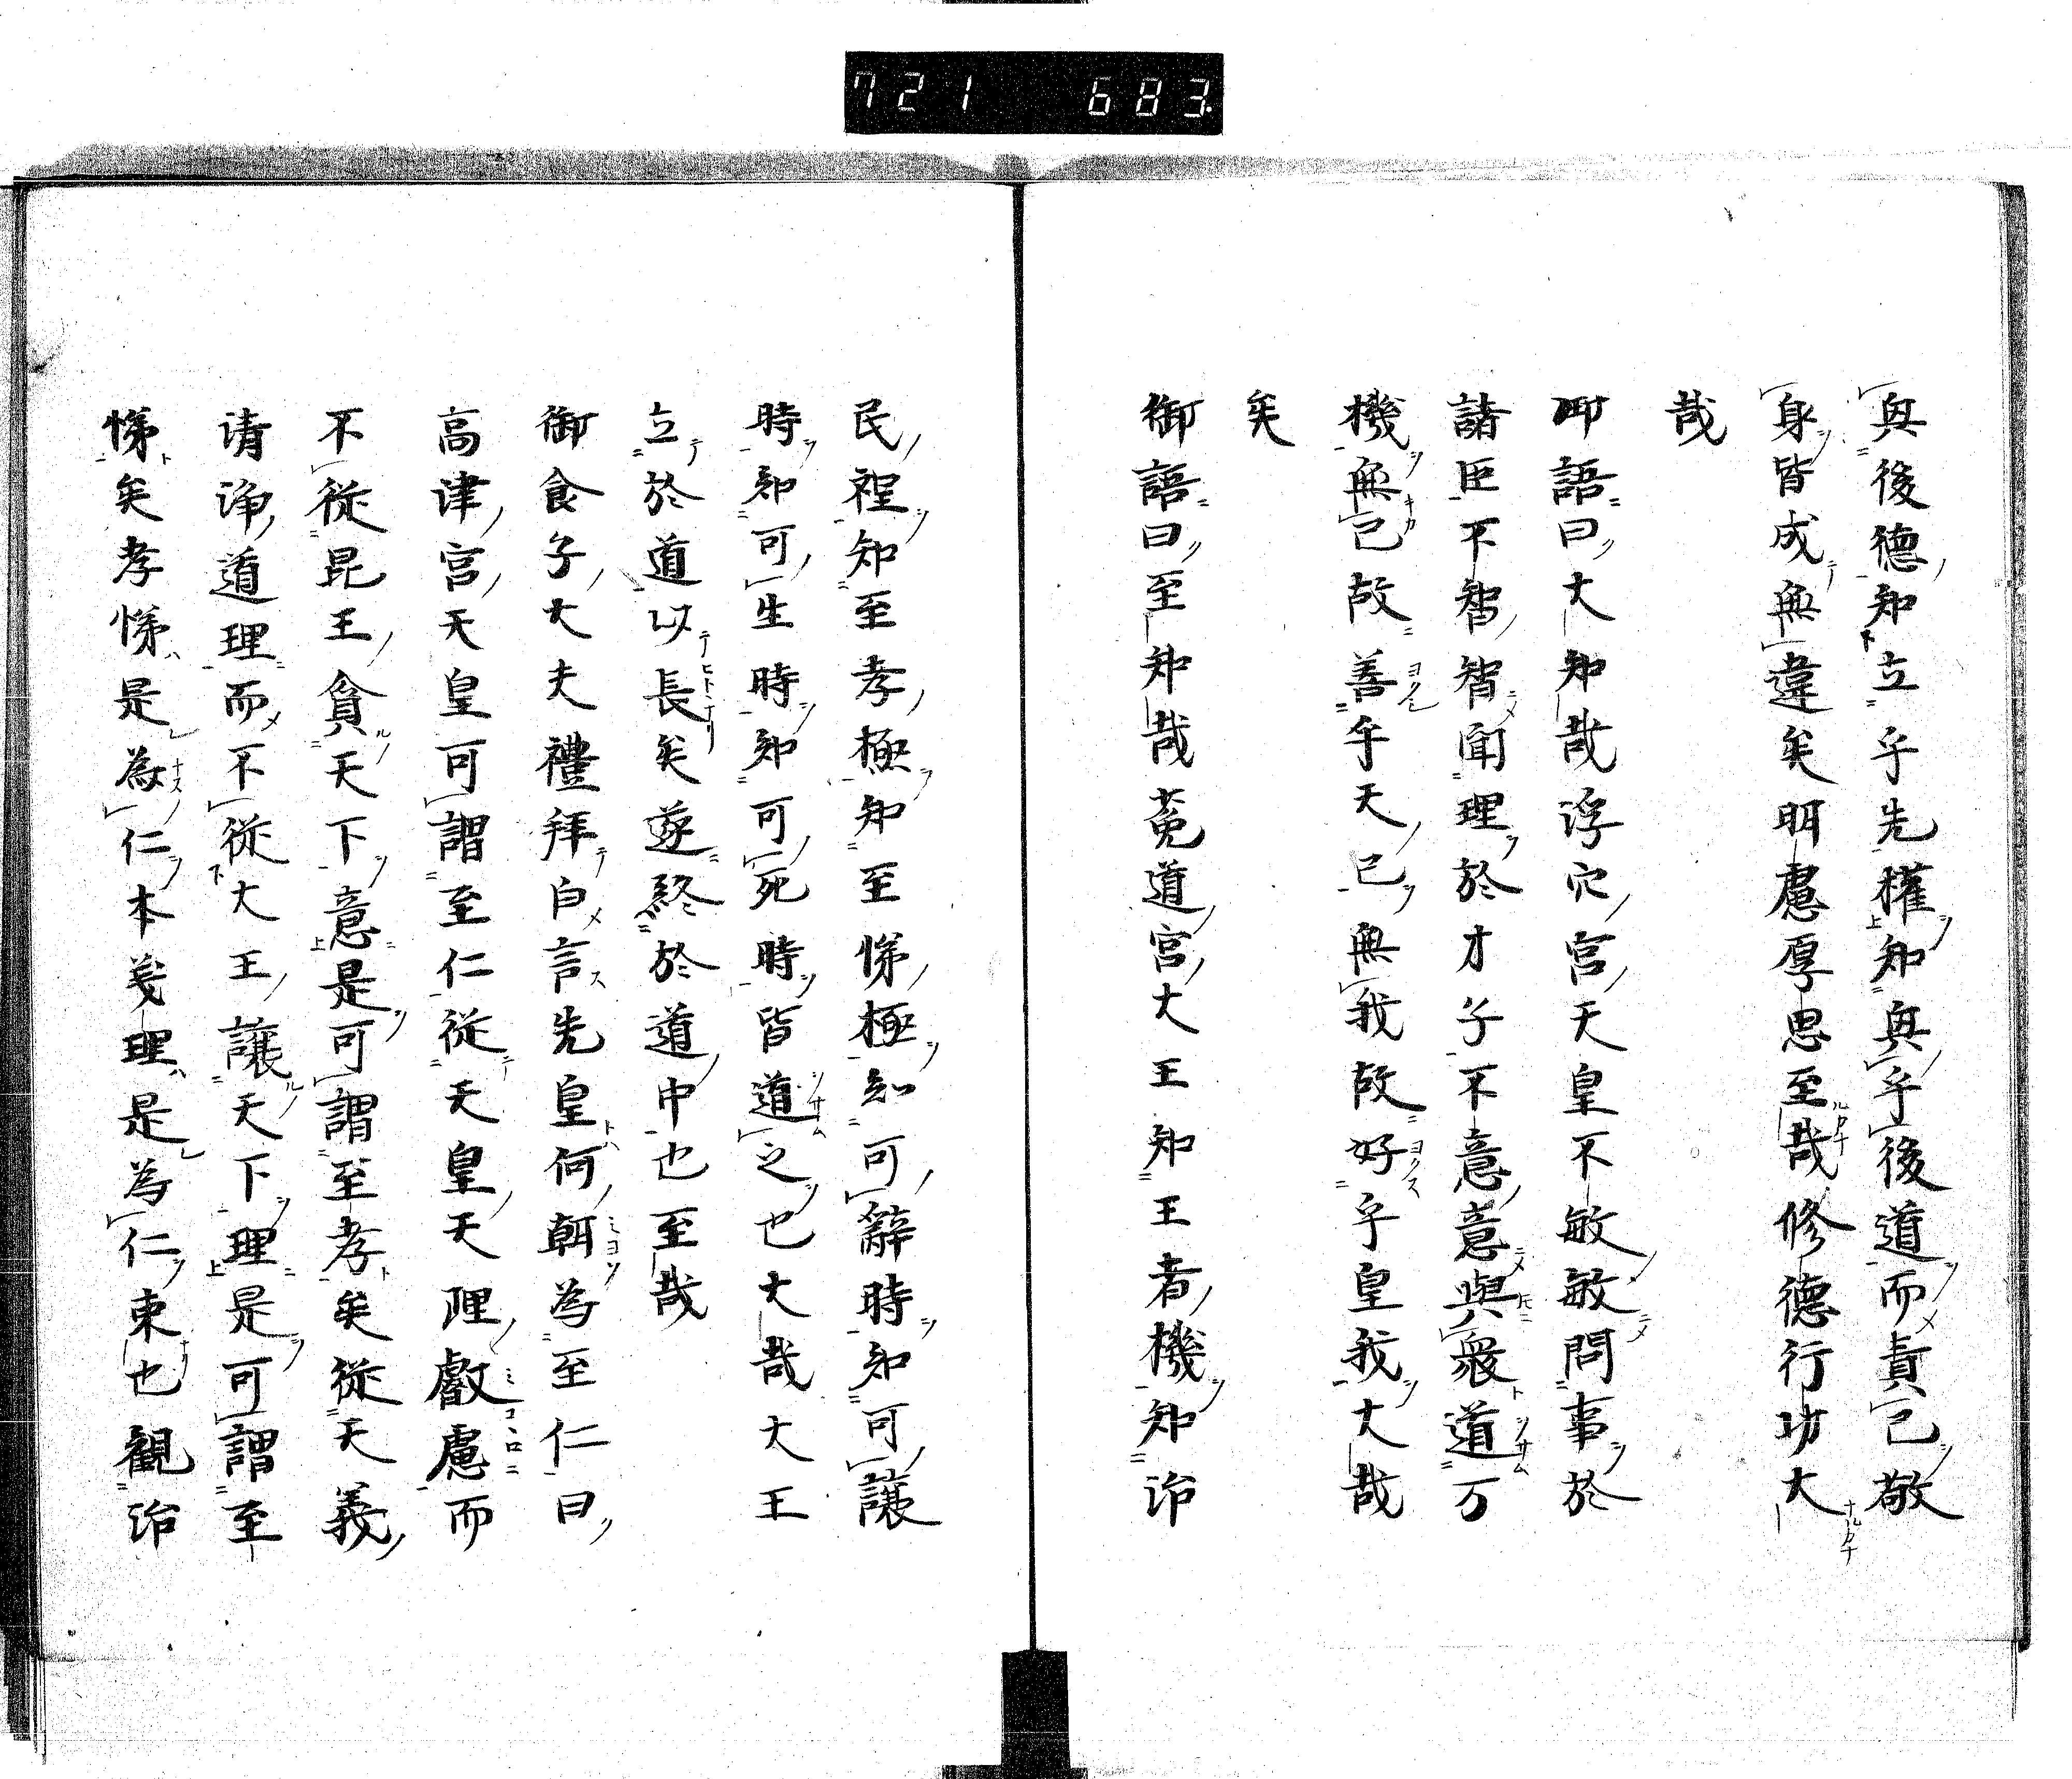 721 683
與後德知立乎先權知與乎後道而責己敬
身皆成無違矣明慮厚思至哉修德行功大
哉
御語曰大知哉浮穴宮天皇不敏敏問事於
諸臣不智智聞理於才子不意意與衆道万
機無己故善乎天己無我故好乎皇我大哉
矣
御語曰至知哉菟道宮大王知王者機知治
民裎知至孝極知至悌極知可辭時知可讓
時知可生時知可死時皆道之也大哉大王
立於道以長矣遂終於道中也至哉
御食子大夫禮拜白言先皇何朝為至仁曰
高津宮天皇可謂至仁從天皇天理叡慮而
不從昆王貪天下意是可謂至孝矣從天義
请諍道理而不從大王讓天下理是可謂至
悌矣孝悌是為仁本義理是為仁束也觀治